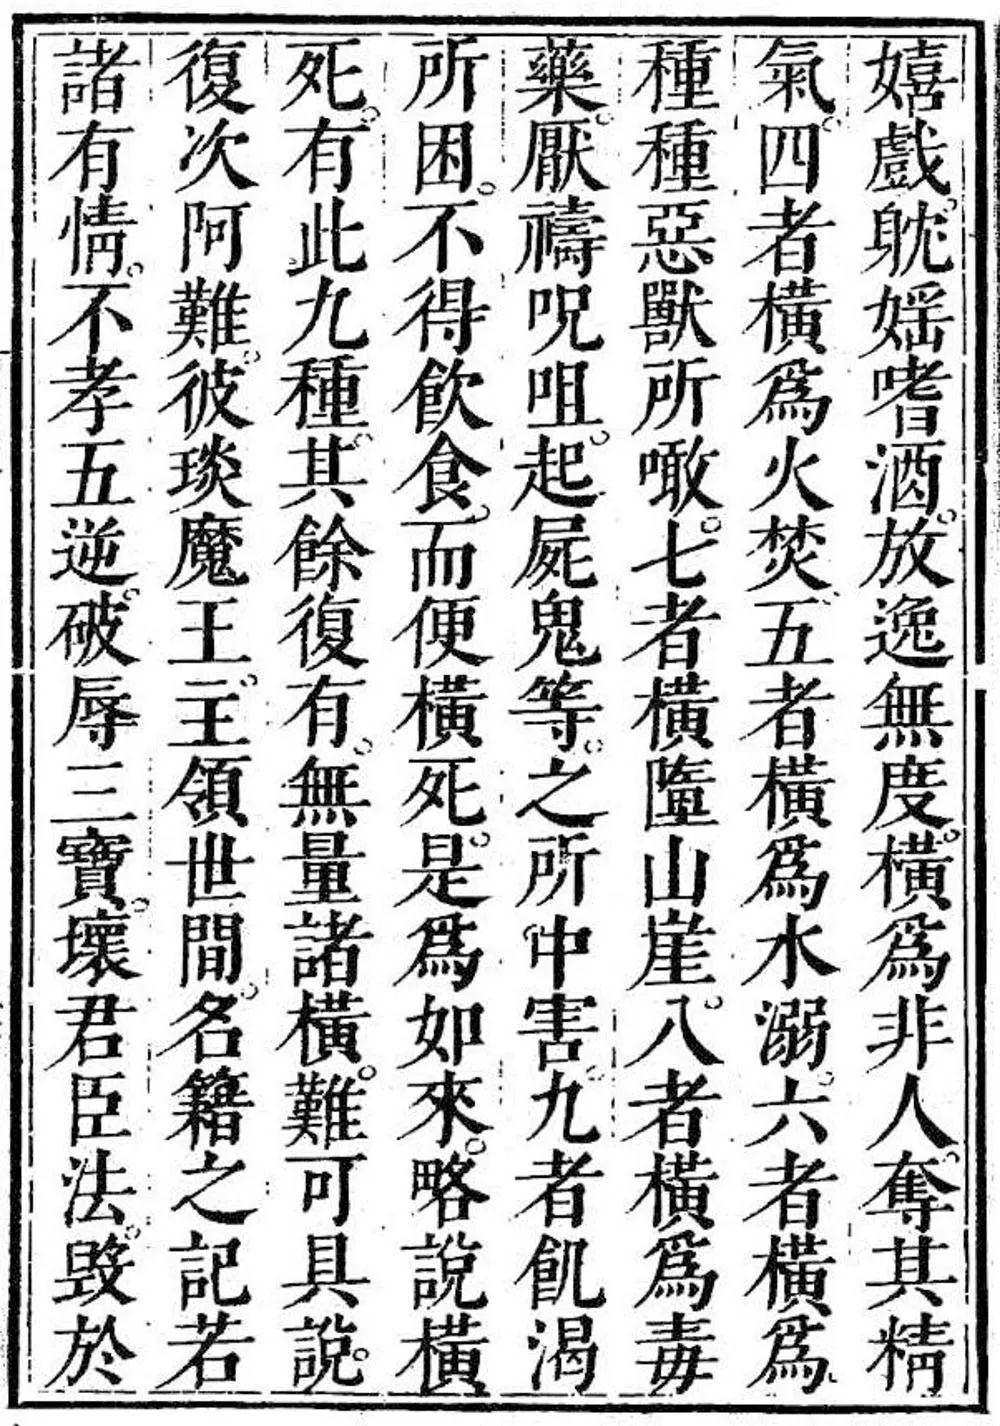 嬉戲。躭婬嗜酒。放逸無度。橫爲非人。奪其精
氣。四者橫爲火焚。五者橫爲水溺。六者橫爲
種種惡獸所噉。七者橫墮山崖。八者橫爲毒
藥。厭禱呪咀。起屍鬼等。之所中害。九者飢渴
所困。不得飲食。而便橫死。是爲如來。略說橫
死。有此九種。其餘復有。無量諸橫。難可具說。
復次阿難。彼琰魔王。主領世間。名籍之記。若
諸有情。不孝五逆。破辱三寶。壞君臣法。毀於